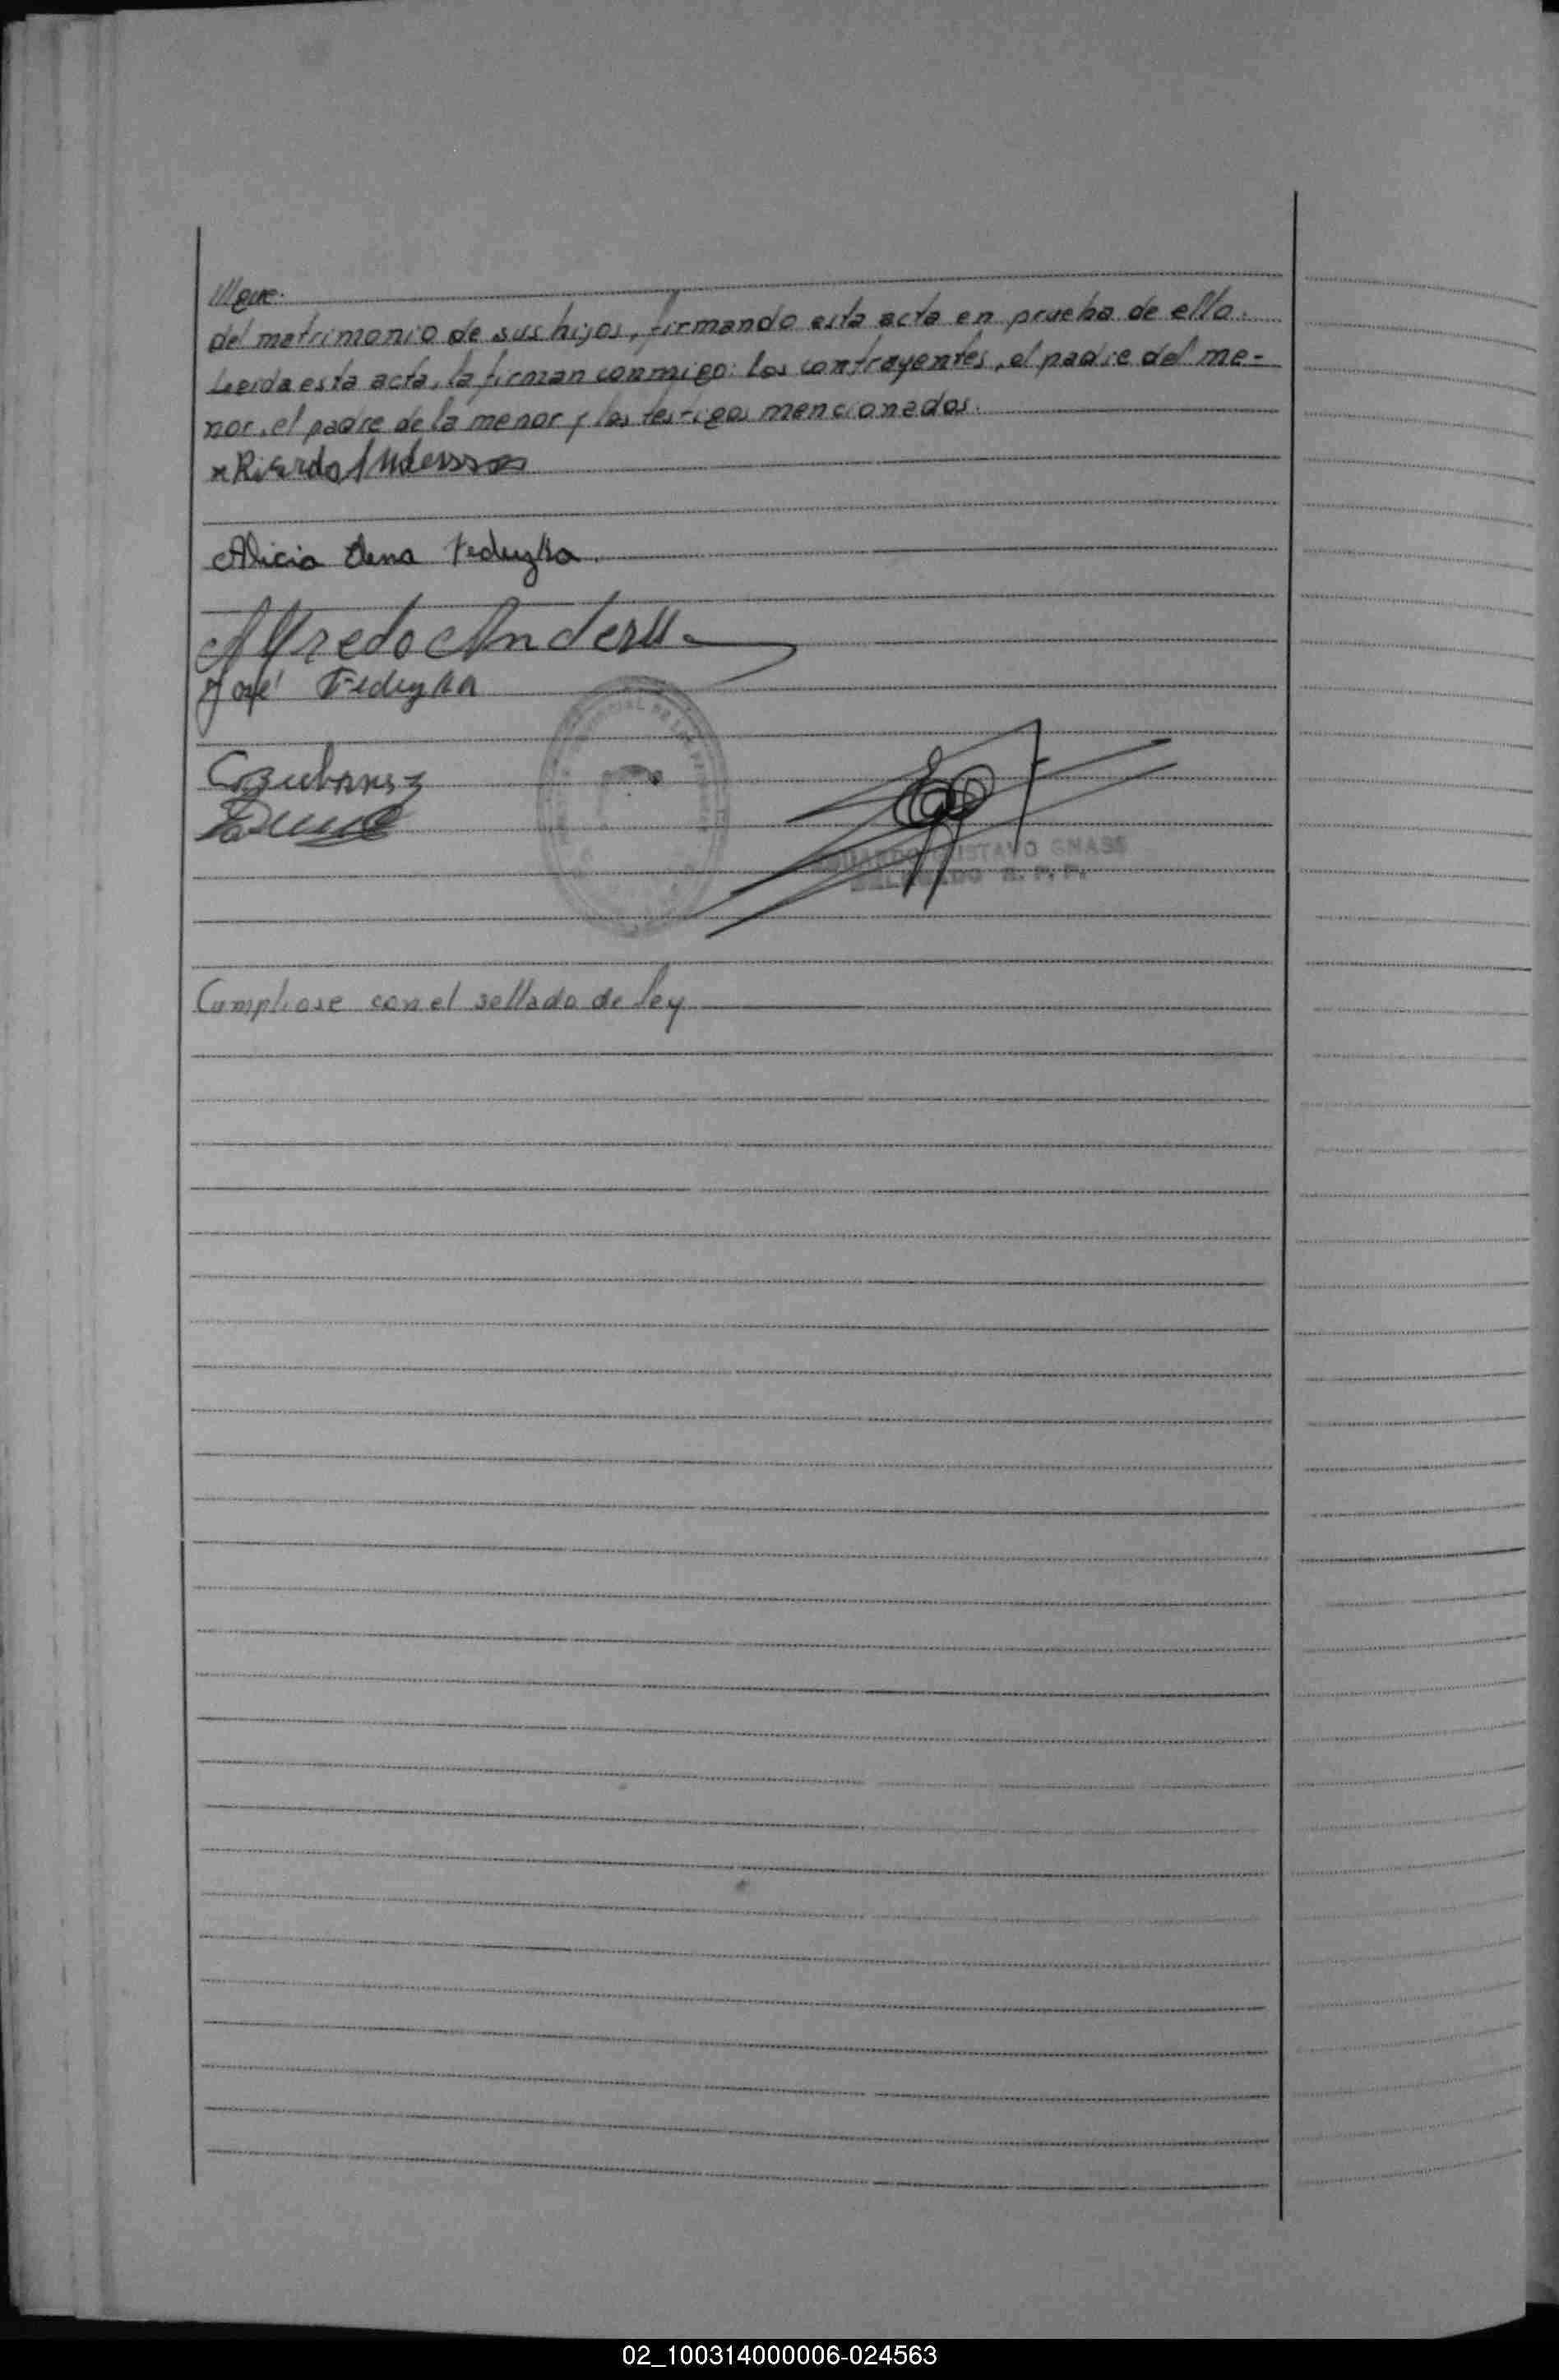 ///gue.
del matrimonio de sus hijos, firmando esta acta en prueba de ello.
Leida esta acta, la firman conmigo: los contrayentes, el padre del me-
nor, el padre de la menor y los testigos mencionados.
Ricardo Andersson
Alicia Elena Fedeyka
Alfredo Anderss
José Fedeyka
EDUARDO GUSTAVO GNASS
DELEGADO R. P. P.
Cumpliose con el sellado de ley
02_100314000006-024563